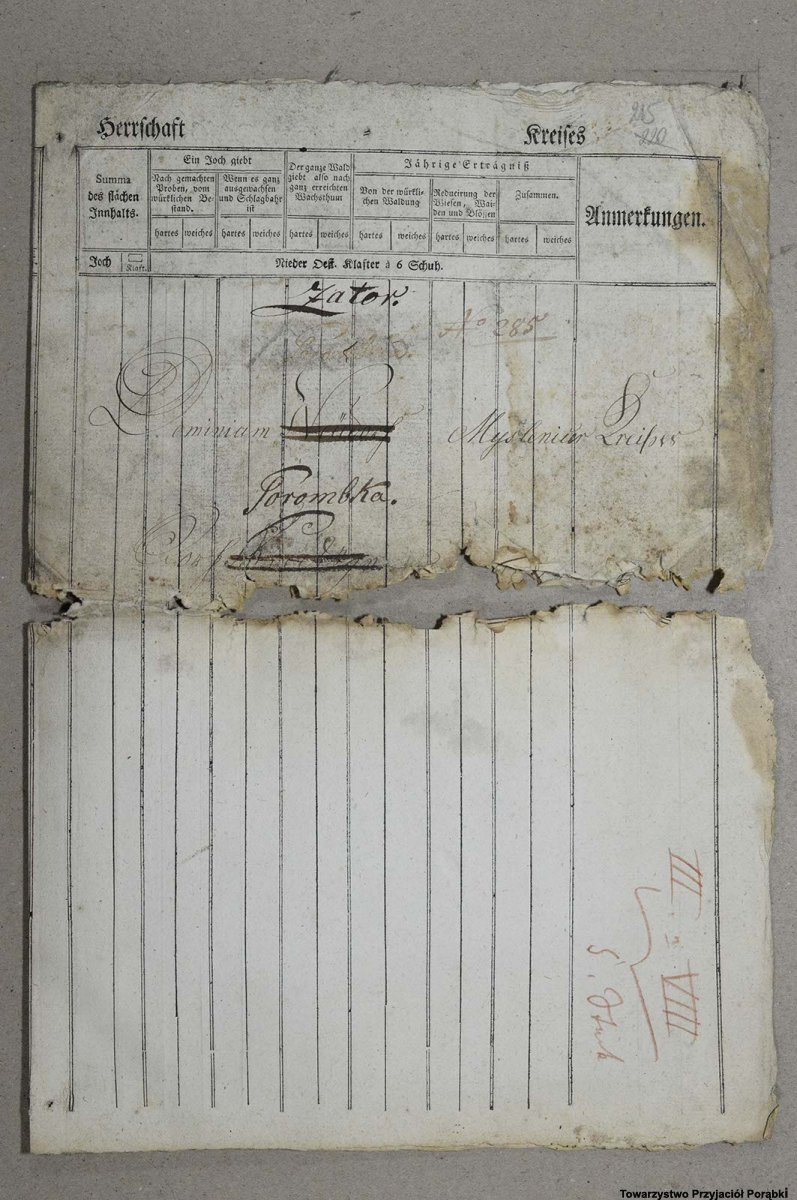 Herrschaft = Kreises
Summa des flächen Innhalts.
Ein Joch giebt
Nach gemachten Proben, vom würklichen Bestand.
Wenn es ganz ausgewachsen und Schlagbahr ist
Der ganze Wald giebt also nach ganz erreichten Wachsthum
Jährige Erträgniß
Von der würklichen Waldung
Reducirung der Wiesen, Waiden und Blössen
Zusammen.
Anmerkungen.
hartes weiches hartes weiches hartes weiches hartes weiches hartes weiches hartes weiches
Joch Klaft. Nieder Oest. Klafter à 6 Schuh.
Zator.
No 285
Dominium Myslenicer Kreißes
Porombka.
Dorf
III - VIII
5
Towarzystwo Przyjaciół Porąbki